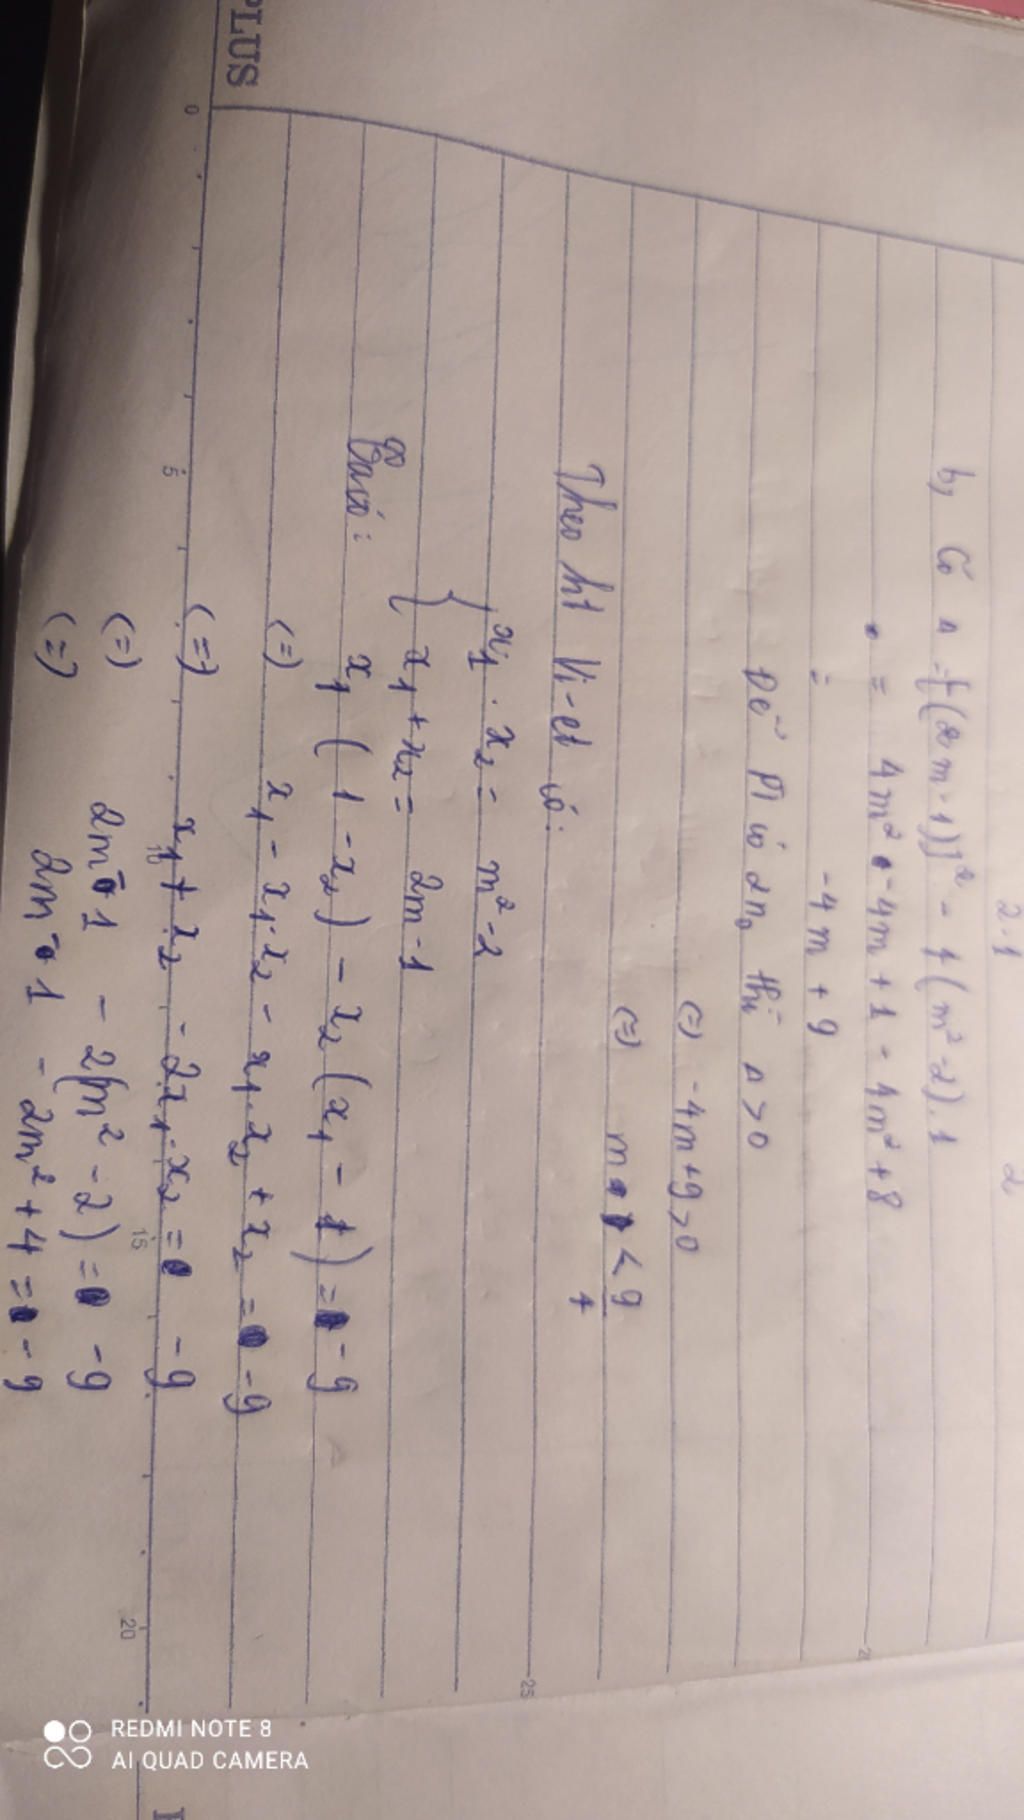 2.1 2
b, Có Δ = [-(2m-1)]² - 4(m²-2).1
= 4m² - 4m + 1 - 4m² + 8
= -4m + 9
Để Pt có 2 n₀ thì Δ > 0
(=) -4m + 9 > 0
(=) m < 9/4
Theo ht Vi-et có:
{ x₁ . x₂ = m² - 2
x₁ + x₂ = 2m - 1
Ta có: x₁ (1 - x₂) - x₂ (x₁ - 1) = -9
(=) x₁ - x₁.x₂ - x₁.x₂ + x₂ = -9
(=) x₁ + x₂ - 2x₁.x₂ = -9
(=) 2m - 1 - 2(m² - 2) = -9
(=) 2m - 1 - 2m² + 4 = -9
PLUS
0
5
10
15
20
25
REDMI NOTE 8
AI QUAD CAMERA